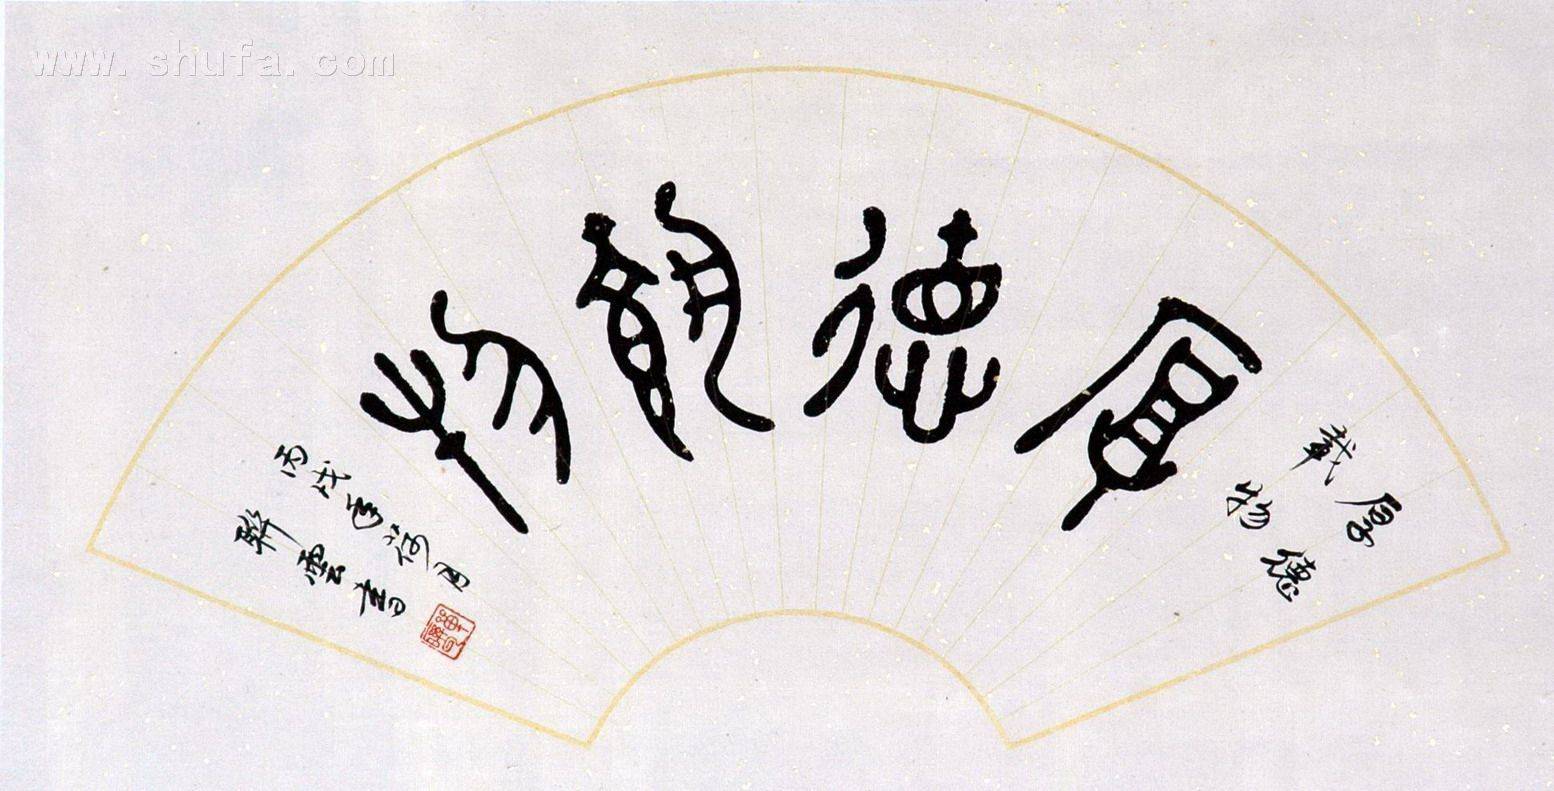 www.shufa.com
厚德
載物
厚德載物
丙戌年荷月
雲書